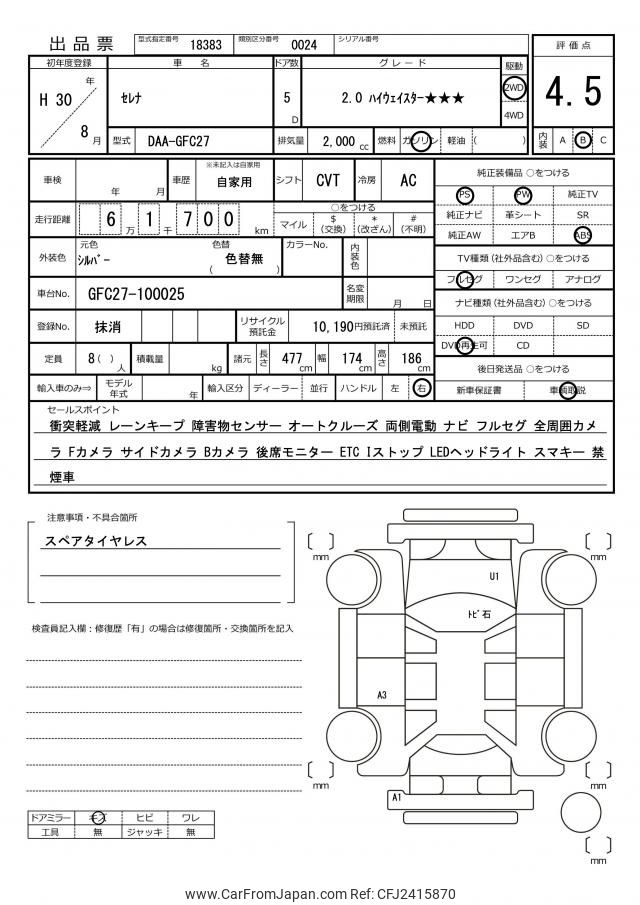 出品票
型式指定番号 18383 類別区分番号 0024 シリアル番号
評価点
4.5
内装 A B C
初年度登録 車名 ドア数 グレード 駆動
H 30 年 8 月
セレナ 5 D 2.0 ハイウェイスター★★★ 2WD
4WD
型式 DAA-GFC27 排気量 2,000 cc 燃料 ガソリン 軽油 ( )
車検 年 月 車歴 ※未記入は自家用 自家用 シフト CVT 冷房 AC
走行距離 6 万 1 千 7 0 0 km
○をつける
マイル $ (交換) * (改ざん) # (不明)
外装色 元色 シルバー 色替 色替無 ( ) カラーNo. 内装色
車台No. GFC27-100025 名変期限 月 日
登録No. 抹消 リサイクル預託金 10,190円預託済 未預託
定員 8( ) 人 積載量 kg 諸元 長さ 477 cm 幅 174 cm 高さ 186 cm
輸入車のみ⇒ モデル年式 年 輸入区分 ディーラー ・ 並行 ハンドル 左 右
純正装備品 ○をつける
PS PW 純正TV
純正ナビ 革シート SR
純正AW エアB ABS
TV種類 (社外品含む) ○をつける
フルセグ ワンセグ アナログ
ナビ種類 (社外品含む) ○をつける
HDD DVD SD
DVD再生可 CD
後日発送品 ○をつける
新車保証書 車輌取説
セールスポイント
衝突軽減 レーンキープ 障害物センサー オートクルーズ 両側電動 ナビ フルセグ 全周囲カメ
ラ Fカメラ サイドカメラ Bカメラ 後席モニター ETC Iストップ LEDヘッドライト スマキー 禁
煙車
注意事項・不具合箇所
スペアタイヤレス
検査員記入欄：修復歴「有」の場合は修復箇所・交換箇所を記入
mm
mm
U1
トビ石
A3
A1
mm
mm
mm
ドアミラー キズ ヒビ ワレ
工具 無 ジャッキ 無
www.CarFromJapan.com Ref: CFJ2415870